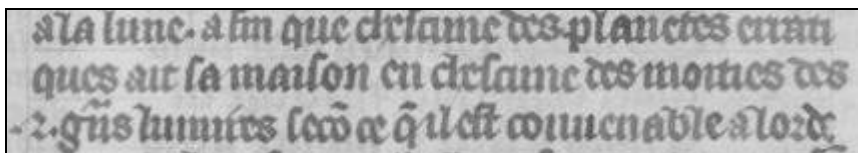 a la lune. afin que chescune des planetes errati
ques ait sa maison en chescune des moities des
.2. gñs lumires secõ ce q̃ il est couuenable a lorde